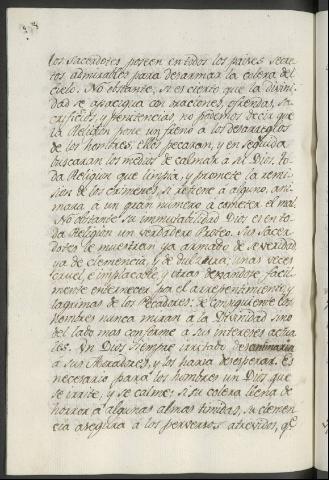 los Sacerdotes poseen en todos los paises secre
tos admirables para desarmar la colera del
cielo. No obstante, si es cierto que la Divini
dad se apacigua con oraciones, ofrendas, sa
crificios, y penitencias, no podemos decir que
la Religion pone un freno a los desarreglos
de los hombres; ellos pecaran, y en seguida
buscaran los medios de calmar a su Dios. To
da Religion que limpia, y promete la remi
sion de los crimenes, si retiene à alguno, ani
mara, à un gran número à cometer el mal.
No obstante su immutabilidad Dios es en to
da Religion un verdadero Proteo. Sus Sacer
dotes le muestran ya armado de severidad,
ya de clemencia, y de dulzura; unas veces
cruel, e implacable, y otras dexandose facil
mente enternecer por el arrepentimiento, y
lagrimas de los Pecadores: de consiguiente los
Hombres nunca miran à la Divinidad sino
del lado mas conforme a sus intereses actua
les. Un Dios siempre irritado desanimaria
à sus Adoradores, y los haria desesperar. Es
necesario para los hombres un Dios que
se irrite, y se calme; si su colera llena de
horror à algunas almas timidas, su clemen
cia asegura à los perversos atrevidos, qe